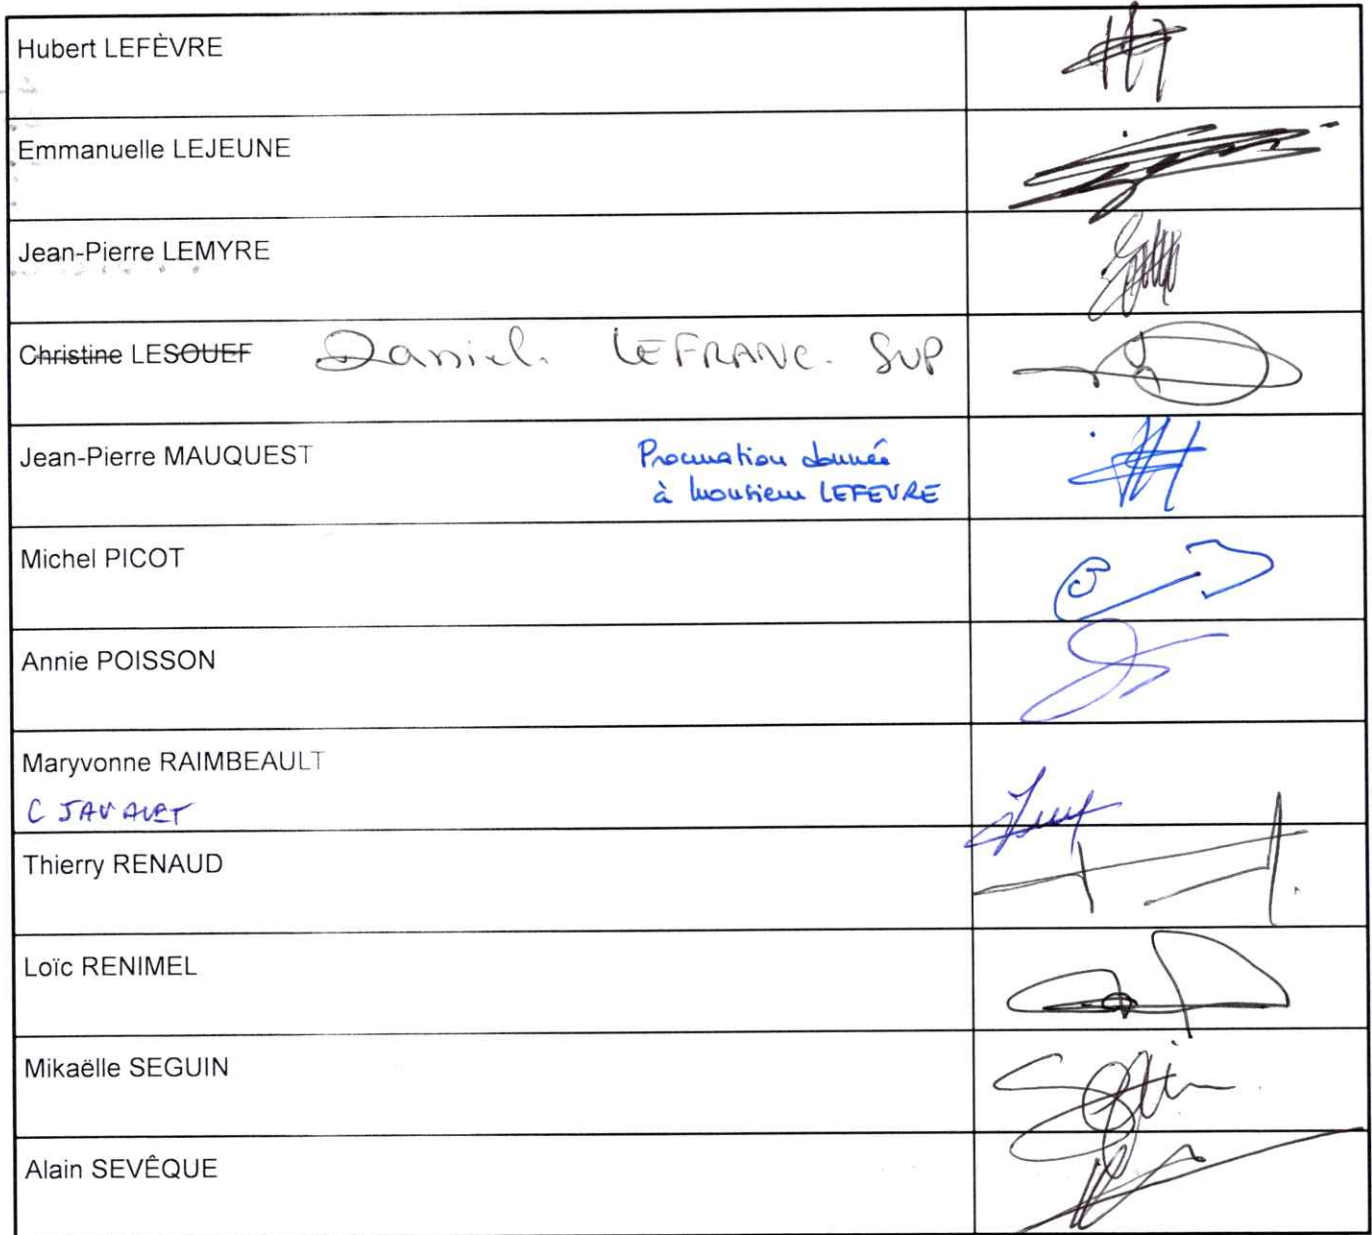 Hubert LEFÈVRE
Emmanuelle LEJEUNE
Jean-Pierre LEMYRE
Christine LESOUEF Daniel. LEFRANC. SUP
Jean-Pierre MAUQUEST
Procuration donnée
à Monsieur LEFEVRE
Michel PICOT
Annie POISSON
Maryvonne RAIMBEAULT
C JAVALET
Thierry RENAUD
Loïc RENIMEL
Mikaëlle SEGUIN
Alain SEVÊQUE